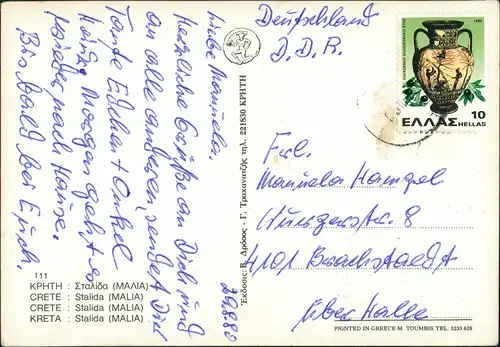 Liebe Manuela,
Herzliche Grüße an Dich und
an alle anderen sendet Dir
Tante Edith + Onkel
Heinz. Morgen geht es
wieder nach Hause.
Bis bald bei Euch.
29.8.80
111
ΚΡΗΤΗ : Σταλίδα (ΜΑΛΙΑ)
CRETE : Stalida (MALIA)
CRETE : Stalida (MALIA)
KRETA : Stalida (MALIA)
Έκδοσις: Β. Δρόσος - Γ. Τραχανατζής τηλ. 221830 ΚΡΗΤΗ
Deutschland
D.D.R.
1980
10
ΕΛΛΑΣ HELLAS
Frl.
Manuela Hampel
8
4101 Brachstadt
über Halle
PRINTED IN GREECE-M TOUMBIS TEL. 5233.639